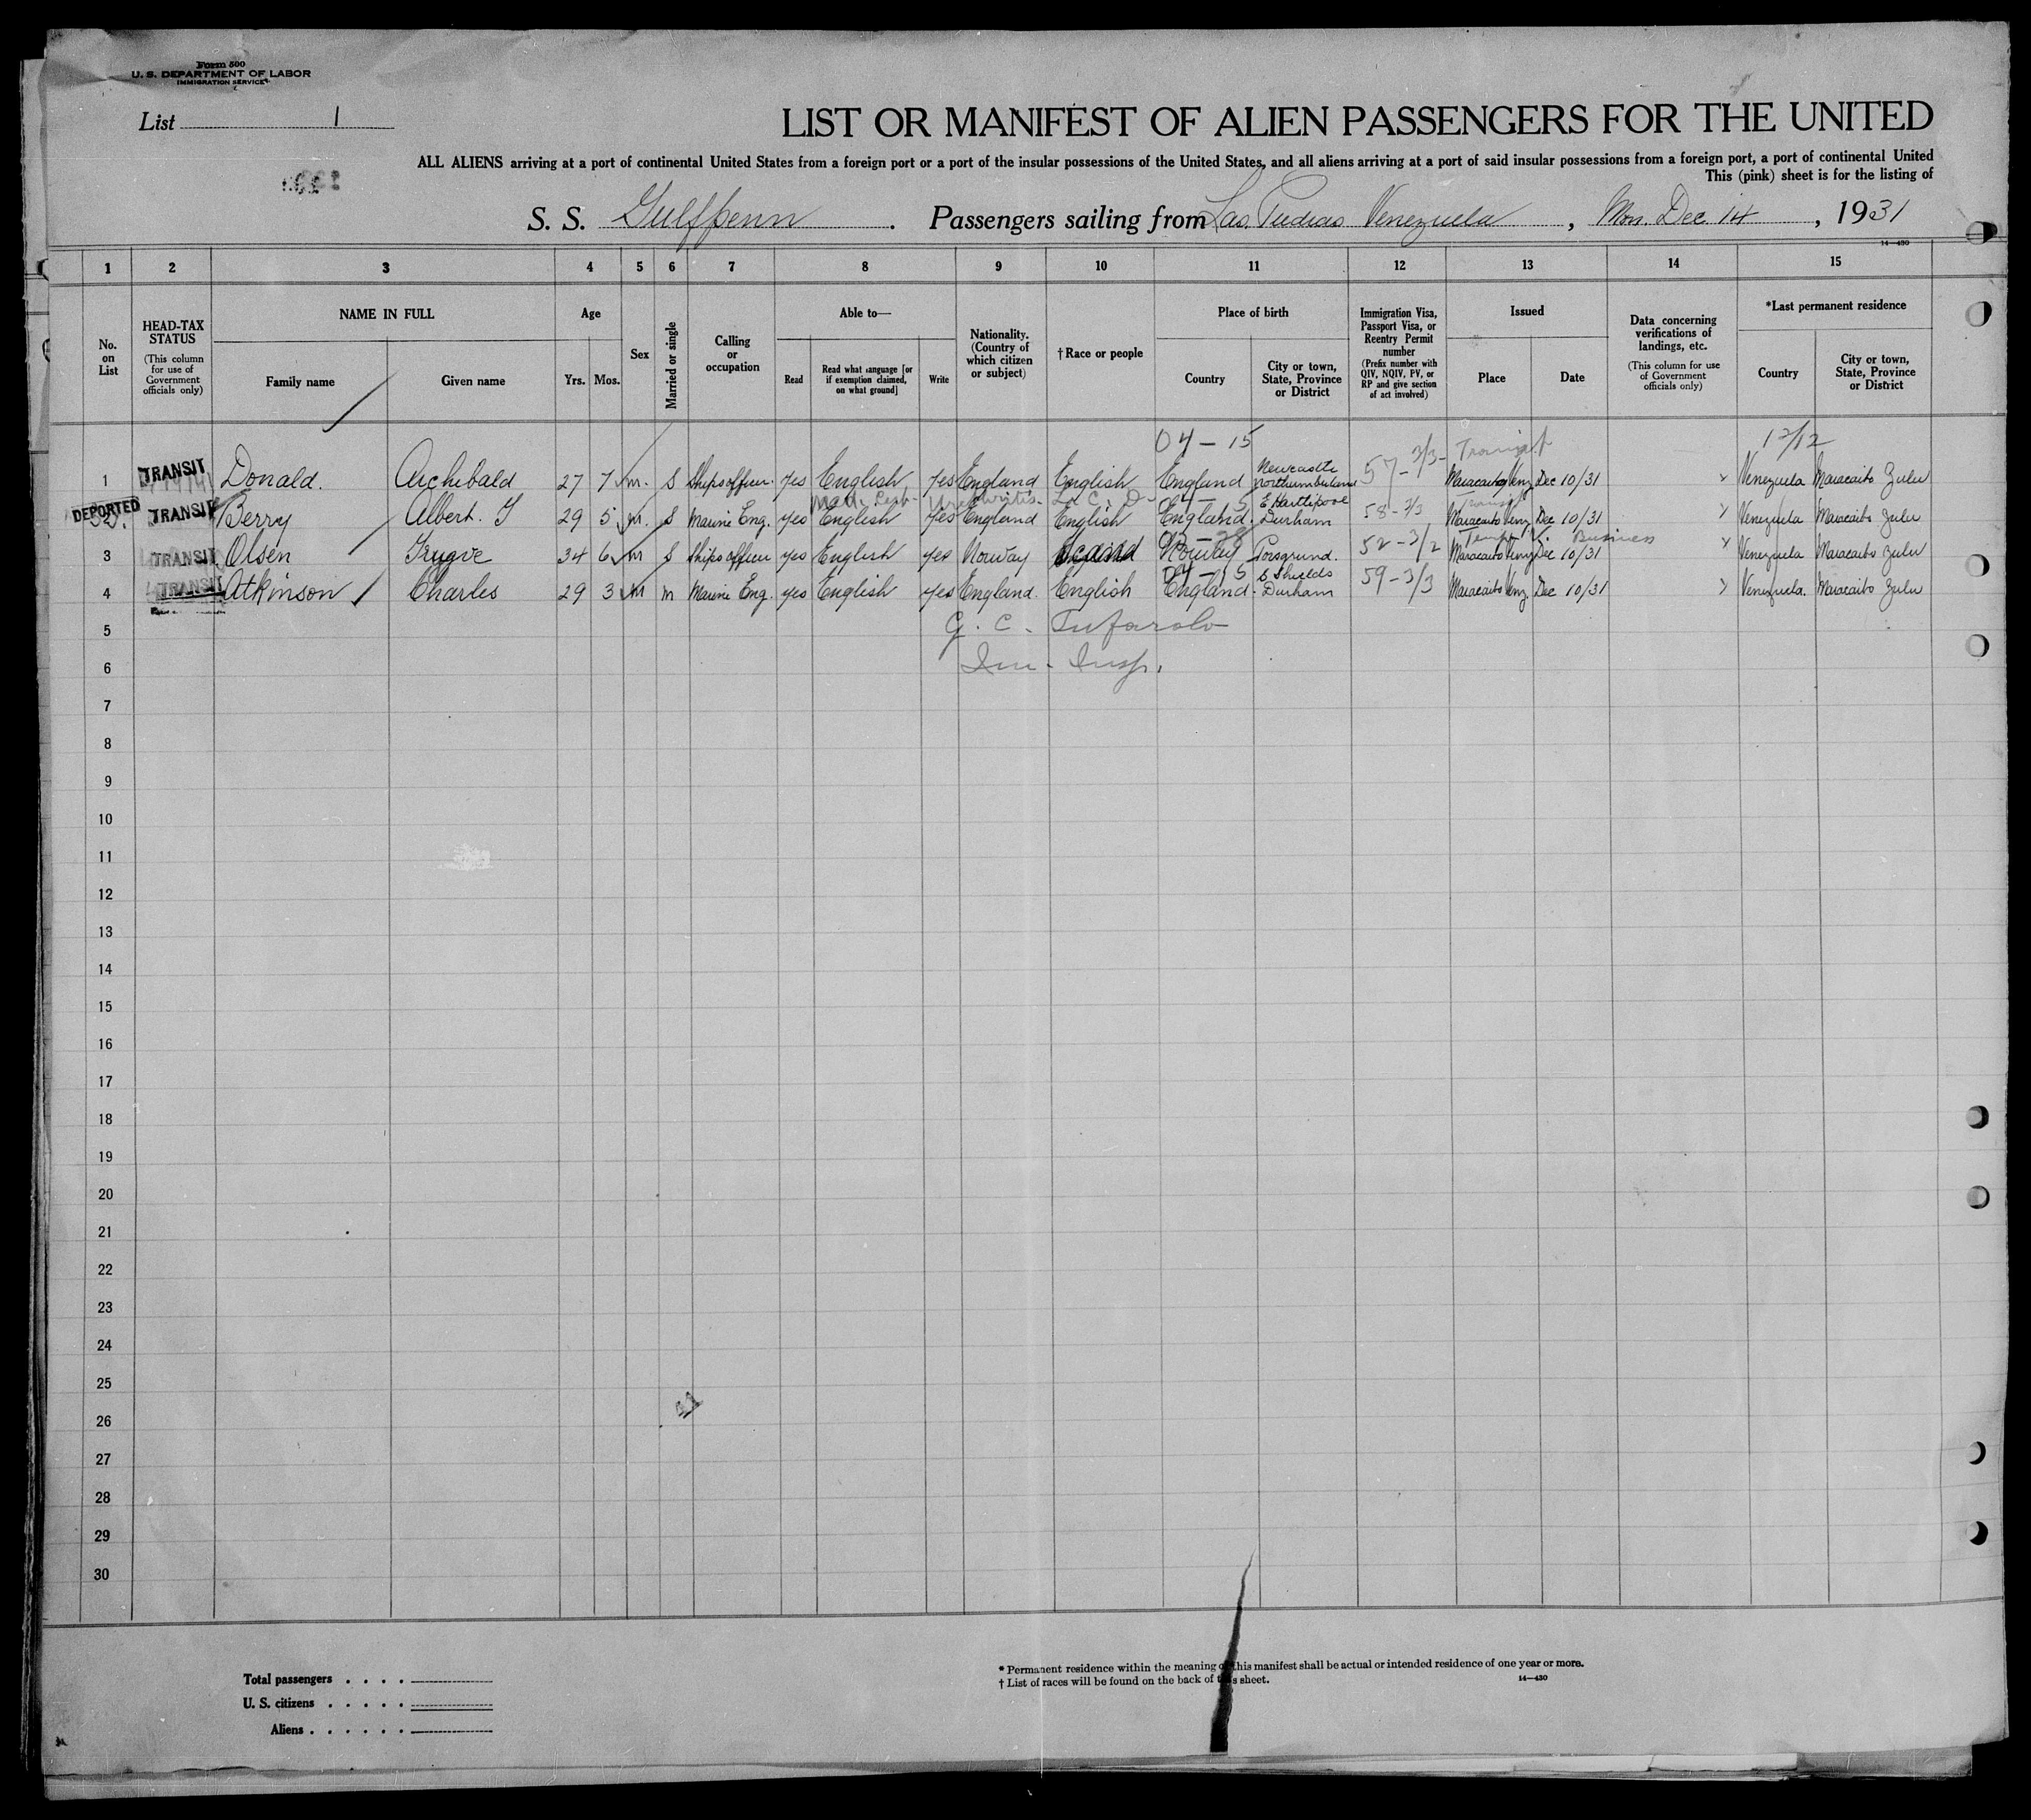 Form 500
U. S. DEPARTMENT OF LABOR
IMMIGRATION SERVICE
List 1
LIST OR MANIFEST OF ALIEN PASSENGERS FOR THE UNITED
ALL ALIENS arriving at a port of continental United States from a foreign port or a port of the insular possessions of the United States, and all aliens arriving at a port of said insular possessions from a foreign port, a port of continental United
This (pink) sheet is for the listing of
S. S. Gulfpenn. Passengers sailing from Las Piedras Venezuela, Mon. Dec 14, 1931
14—430
1 2 3 4 5 6 7 8 9 10 11 12 13 14 15
No. on List
HEAD-TAX STATUS (This column for use of Government officials only)
NAME IN FULL
Family name
Given name
Age
Yrs. Mos.
Sex
Married or single
Calling or occupation
Able to—
Read
Read what language [or if exemption claimed, on what ground]
Write
Nationality. (Country of which citizen or subject)
† Race or people
Place of birth
Country
City or town, State, Province or District
Immigration Visa, Passport Visa, or Reentry Permit number (Prefix number with QIV, NQIV, PV, or RP and give section of act involved)
Issued
Place
Date
Data concerning verifications of landings, etc. (This column for use of Government officials only)
*Last permanent residence
Country
City or town, State, Province or District
04-15 12/12
Transit
1 TRANSIT Donald. Archibald 27 7 m. S Ships officer. yes English yes England English England Newcastle Northumberland 57-3/3- Maracaibo Venz Dec 10/31 Venezuela Maracaibo Zulu
04-15
Transit
DEPORTED TRANSIT Berry Albert. 29 5 m. S Marine Eng. yes English yes England English England. E Hartlepool Durham 58-3/3 Maracaibo Venz Dec 10/31 Venezuela Maracaibo Zulu
Business
3 TRANSIT Olsen Trygve 34 6 m S Ships officer yes English yes Norway Scand Norway Porsgrund. 52-3/2 Maracaibo Venz Dec 10/31 Venezuela Maracaibo Zulu
04-15
4 TRANSIT Atkinson Charles 29 3 m m Marine Eng. yes English yes England. English England. S Shields Durham 59-3/3 Maracaibo Venz. Dec 10/31 Venezuela. Maracaibo Zulu
5 G. C. Tufarolo
6 Im. Insp.
7
8
9
10
11
12
13
14
15
16
17
18
19
20
21
22
23
24
25
26
27
28
29
30
Total passengers . . . .
U. S. citizens . . . . .
Aliens . . . . . .
* Permanent residence within the meaning of this manifest shall be actual or intended residence of one year or more.
† List of races will be found on the back of this sheet.
14—430